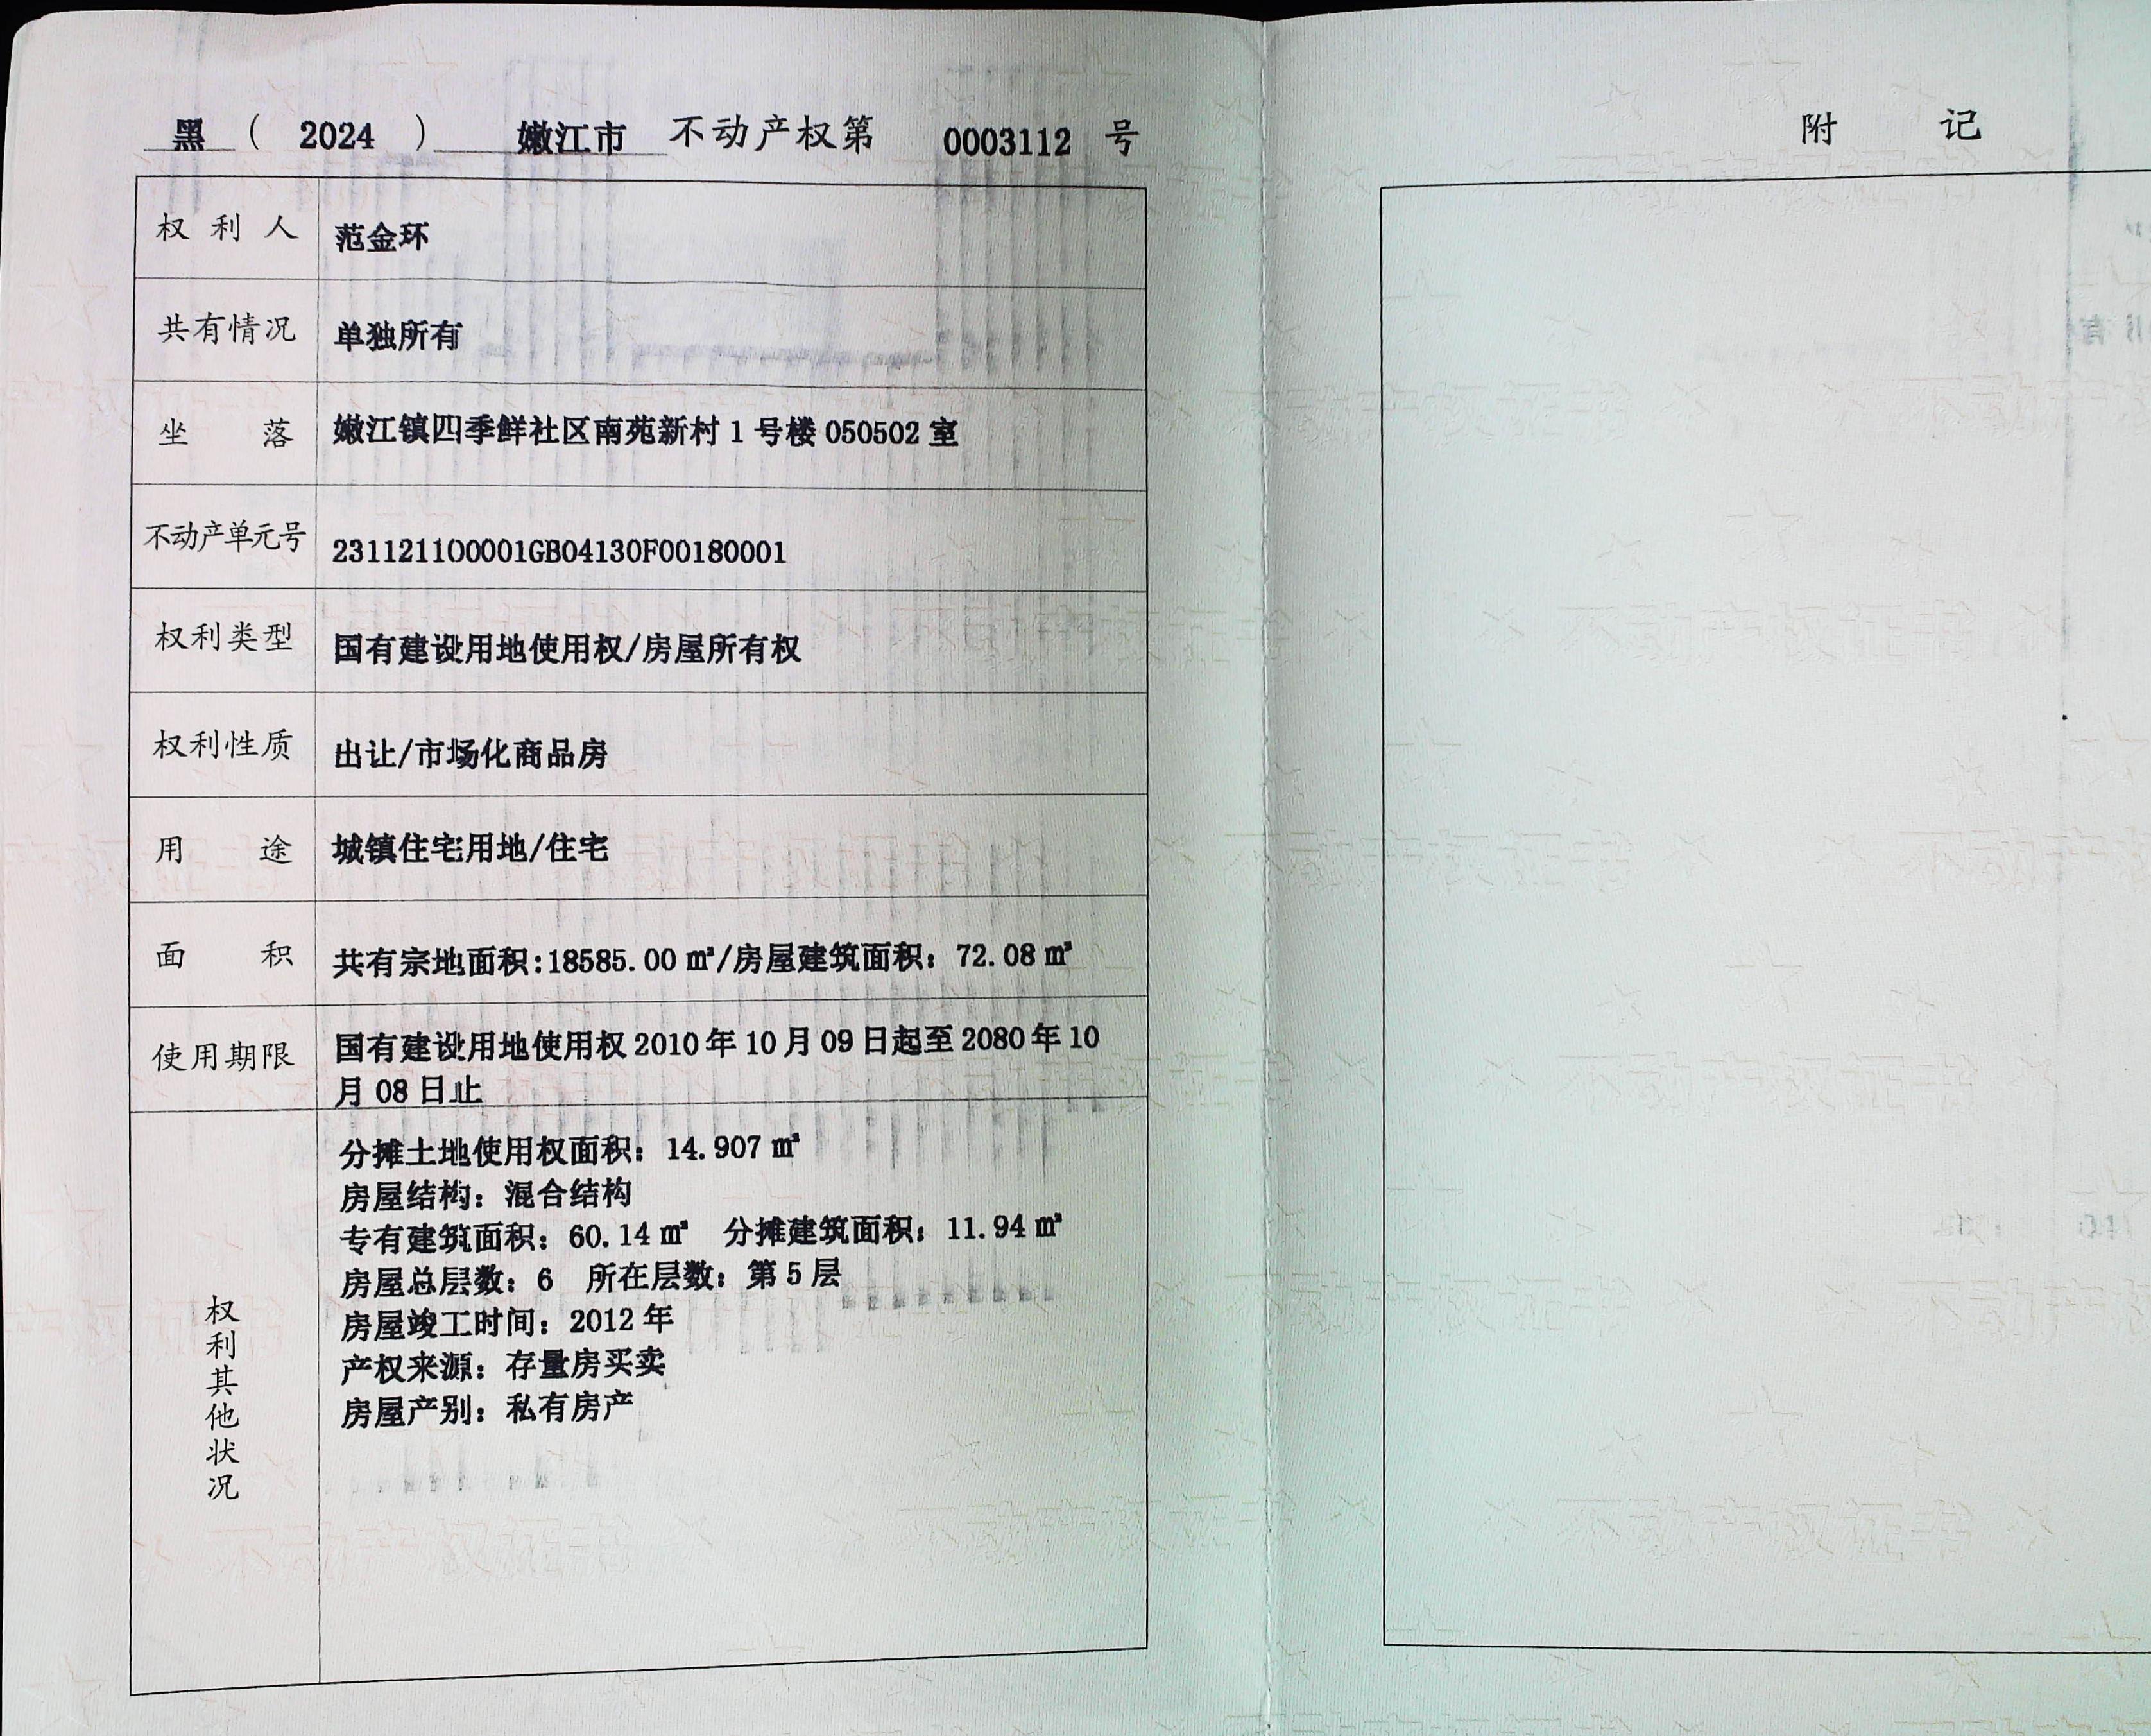 黑 ( 2024 ) 嫩江市 不动产权第 0003112 号
权利人 范金环
共有情况 单独所有
坐落 嫩江镇四季鲜社区南苑新村 1 号楼 050502 室
不动产单元号 231121100001GB04130F00180001
权利类型 国有建设用地使用权/房屋所有权
权利性质 出让/市场化商品房
用途 城镇住宅用地/住宅
面积 共有宗地面积:18585.00 ㎡/房屋建筑面积：72.08 ㎡
使用期限 国有建设用地使用权 2010 年 10 月 09 日起至 2080 年 10
月 08 日止
权利其他状况
分摊土地使用权面积：14.907 ㎡
房屋结构：混合结构
专有建筑面积：60.14 ㎡ 分摊建筑面积：11.94 ㎡
房屋总层数：6 所在层数：第 5 层
房屋竣工时间：2012 年
产权来源：存量房买卖
房屋产别：私有房产
附记